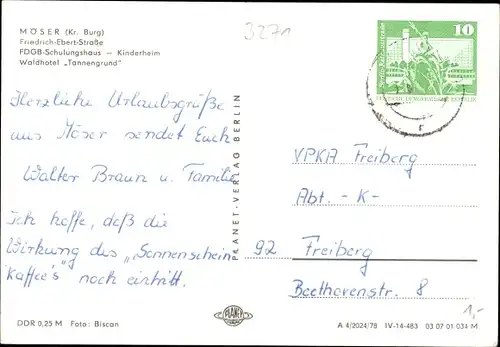 MÖSER (Kr. Burg)
Friedrich-Ebert-Straße
FDGB-Schulungshaus — Kinderheim
Waldhotel „Tannengrund"
3271
10
DEUTSCHE DEMOKRATISCHE REPUBLIK
Herzliche Urlaubsgrüße
aus Möser sendet Euch
Walter Braun u. Familie
Ich hoffe, daß die
Wirkung des „Sonnenschein
Kaffee's" noch eintritt.
PLANET-VERLAG BERLIN
VPKA Freiberg
Abt. -K-
92 Freiberg
Beethovenstr. 8
1,-
PLANET
DDR 0,25 M Foto: Biscan
A 4/2024/78 IV-14-483 03 07 01 034 M